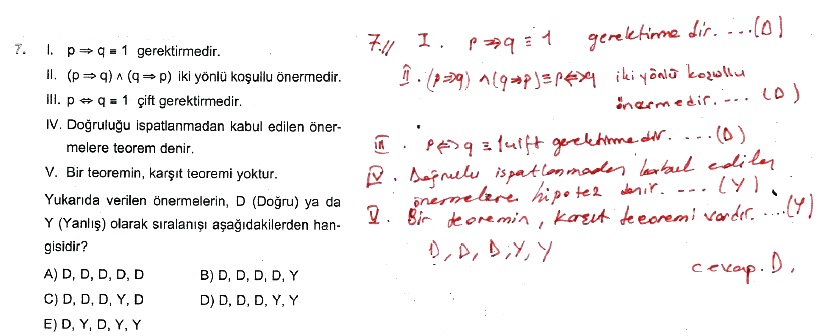 7. I. p ⇒ q ≡ 1 gerektirmedir.
II. (p ⇒ q) ∧ (q ⇒ p) iki yönlü koşullu önermedir.
III. p ⇔ q ≡ 1 çift gerektirmedir.
IV. Doğruluğu ispatlanmadan kabul edilen öner-
melere teorem denir.
V. Bir teoremin, karşıt teoremi yoktur.
Yukarıda verilen önermelerin, D (Doğru) ya da
Y (Yanlış) olarak sıralanışı aşağıdakilerden han-
gisidir?
A) D, D, D, D, D B) D, D, D, D, Y
C) D, D, D, Y, D D) D, D, D, Y, Y
E) D, Y, D, Y, Y
7.// I. p ⇒ q ≡ 1 gerektirme dir. ....(D)
II. (p⇒q) ∧ (q⇒p) ≡ p⇔q iki yönlü koşullu
önermedir. .... (D)
III. p⇔q ≡ 1 çift gerektirmedir. ....(D)
IV. Doğruluğu ispatlanmadan kabul edilen
önermelere hipotez denir. .... (Y)
V. Bir teoremin, karşıt teoremi vardır. ....(Y)
D, D, D, Y, Y
cevap. D.